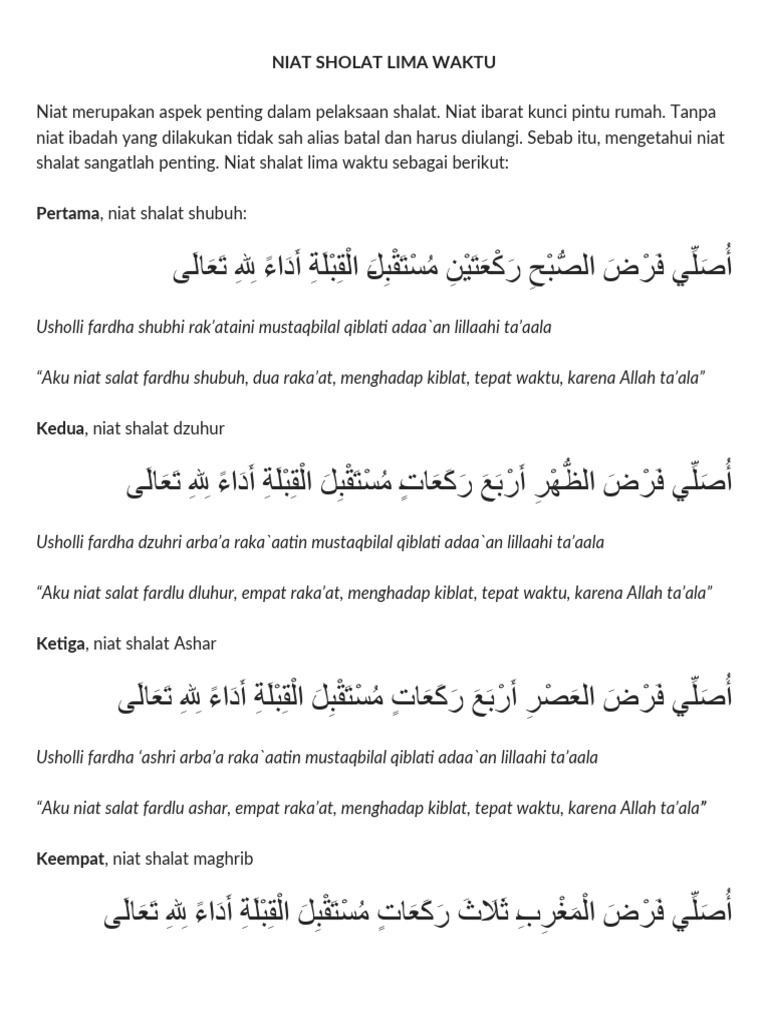 NIAT SHOLAT LIMA WAKTU
Niat merupakan aspek penting dalam pelaksaan shalat. Niat ibarat kunci pintu rumah. Tanpa
niat ibadah yang dilakukan tidak sah alias batal dan harus diulangi. Sebab itu, mengetahui niat
shalat sangatlah penting. Niat shalat lima waktu sebagai berikut:
Pertama, niat shalat shubuh:
أُصَلِّي فَرْضَ الصُّبْحِ رَكْعَتَيْنِ مُسْتَقْبِلَ الْقِبْلَةِ أَدَاءً لِلهِ تَعَالَى
Usholli fardha shubhi rak’ataini mustaqbilal qiblati adaa`an lillaahi ta’aala
“Aku niat salat fardhu shubuh, dua raka’at, menghadap kiblat, tepat waktu, karena Allah ta’ala”
Kedua, niat shalat dzuhur
أُصَلِّي فَرْضَ الظُّهْرِ أَرْبَعَ رَكَعَاتٍ مُسْتَقْبِلَ الْقِبْلَةِ أَدَاءً لِلهِ تَعَالَى
Usholli fardha dzuhri arba’a raka`aatin mustaqbilal qiblati adaa`an lillaahi ta’aala
“Aku niat salat fardlu dluhur, empat raka’at, menghadap kiblat, tepat waktu, karena Allah ta’ala”
Ketiga, niat shalat Ashar
أُصَلِّي فَرْضَ العَصْرِ أَرْبَعَ رَكَعَاتٍ مُسْتَقْبِلَ الْقِبْلَةِ أَدَاءً لِلهِ تَعَالَى
Usholli fardha ‘ashri arba’a raka`aatin mustaqbilal qiblati adaa`an lillaahi ta’aala
“Aku niat salat fardlu ashar, empat raka’at, menghadap kiblat, tepat waktu, karena Allah ta’ala”
Keempat, niat shalat maghrib
أُصَلِّي فَرْضَ الْمَغْرِبِ ثَلَاثَ رَكَعَاتٍ مُسْتَقْبِلَ الْقِبْلَةِ أَدَاءً لِلهِ تَعَالَى